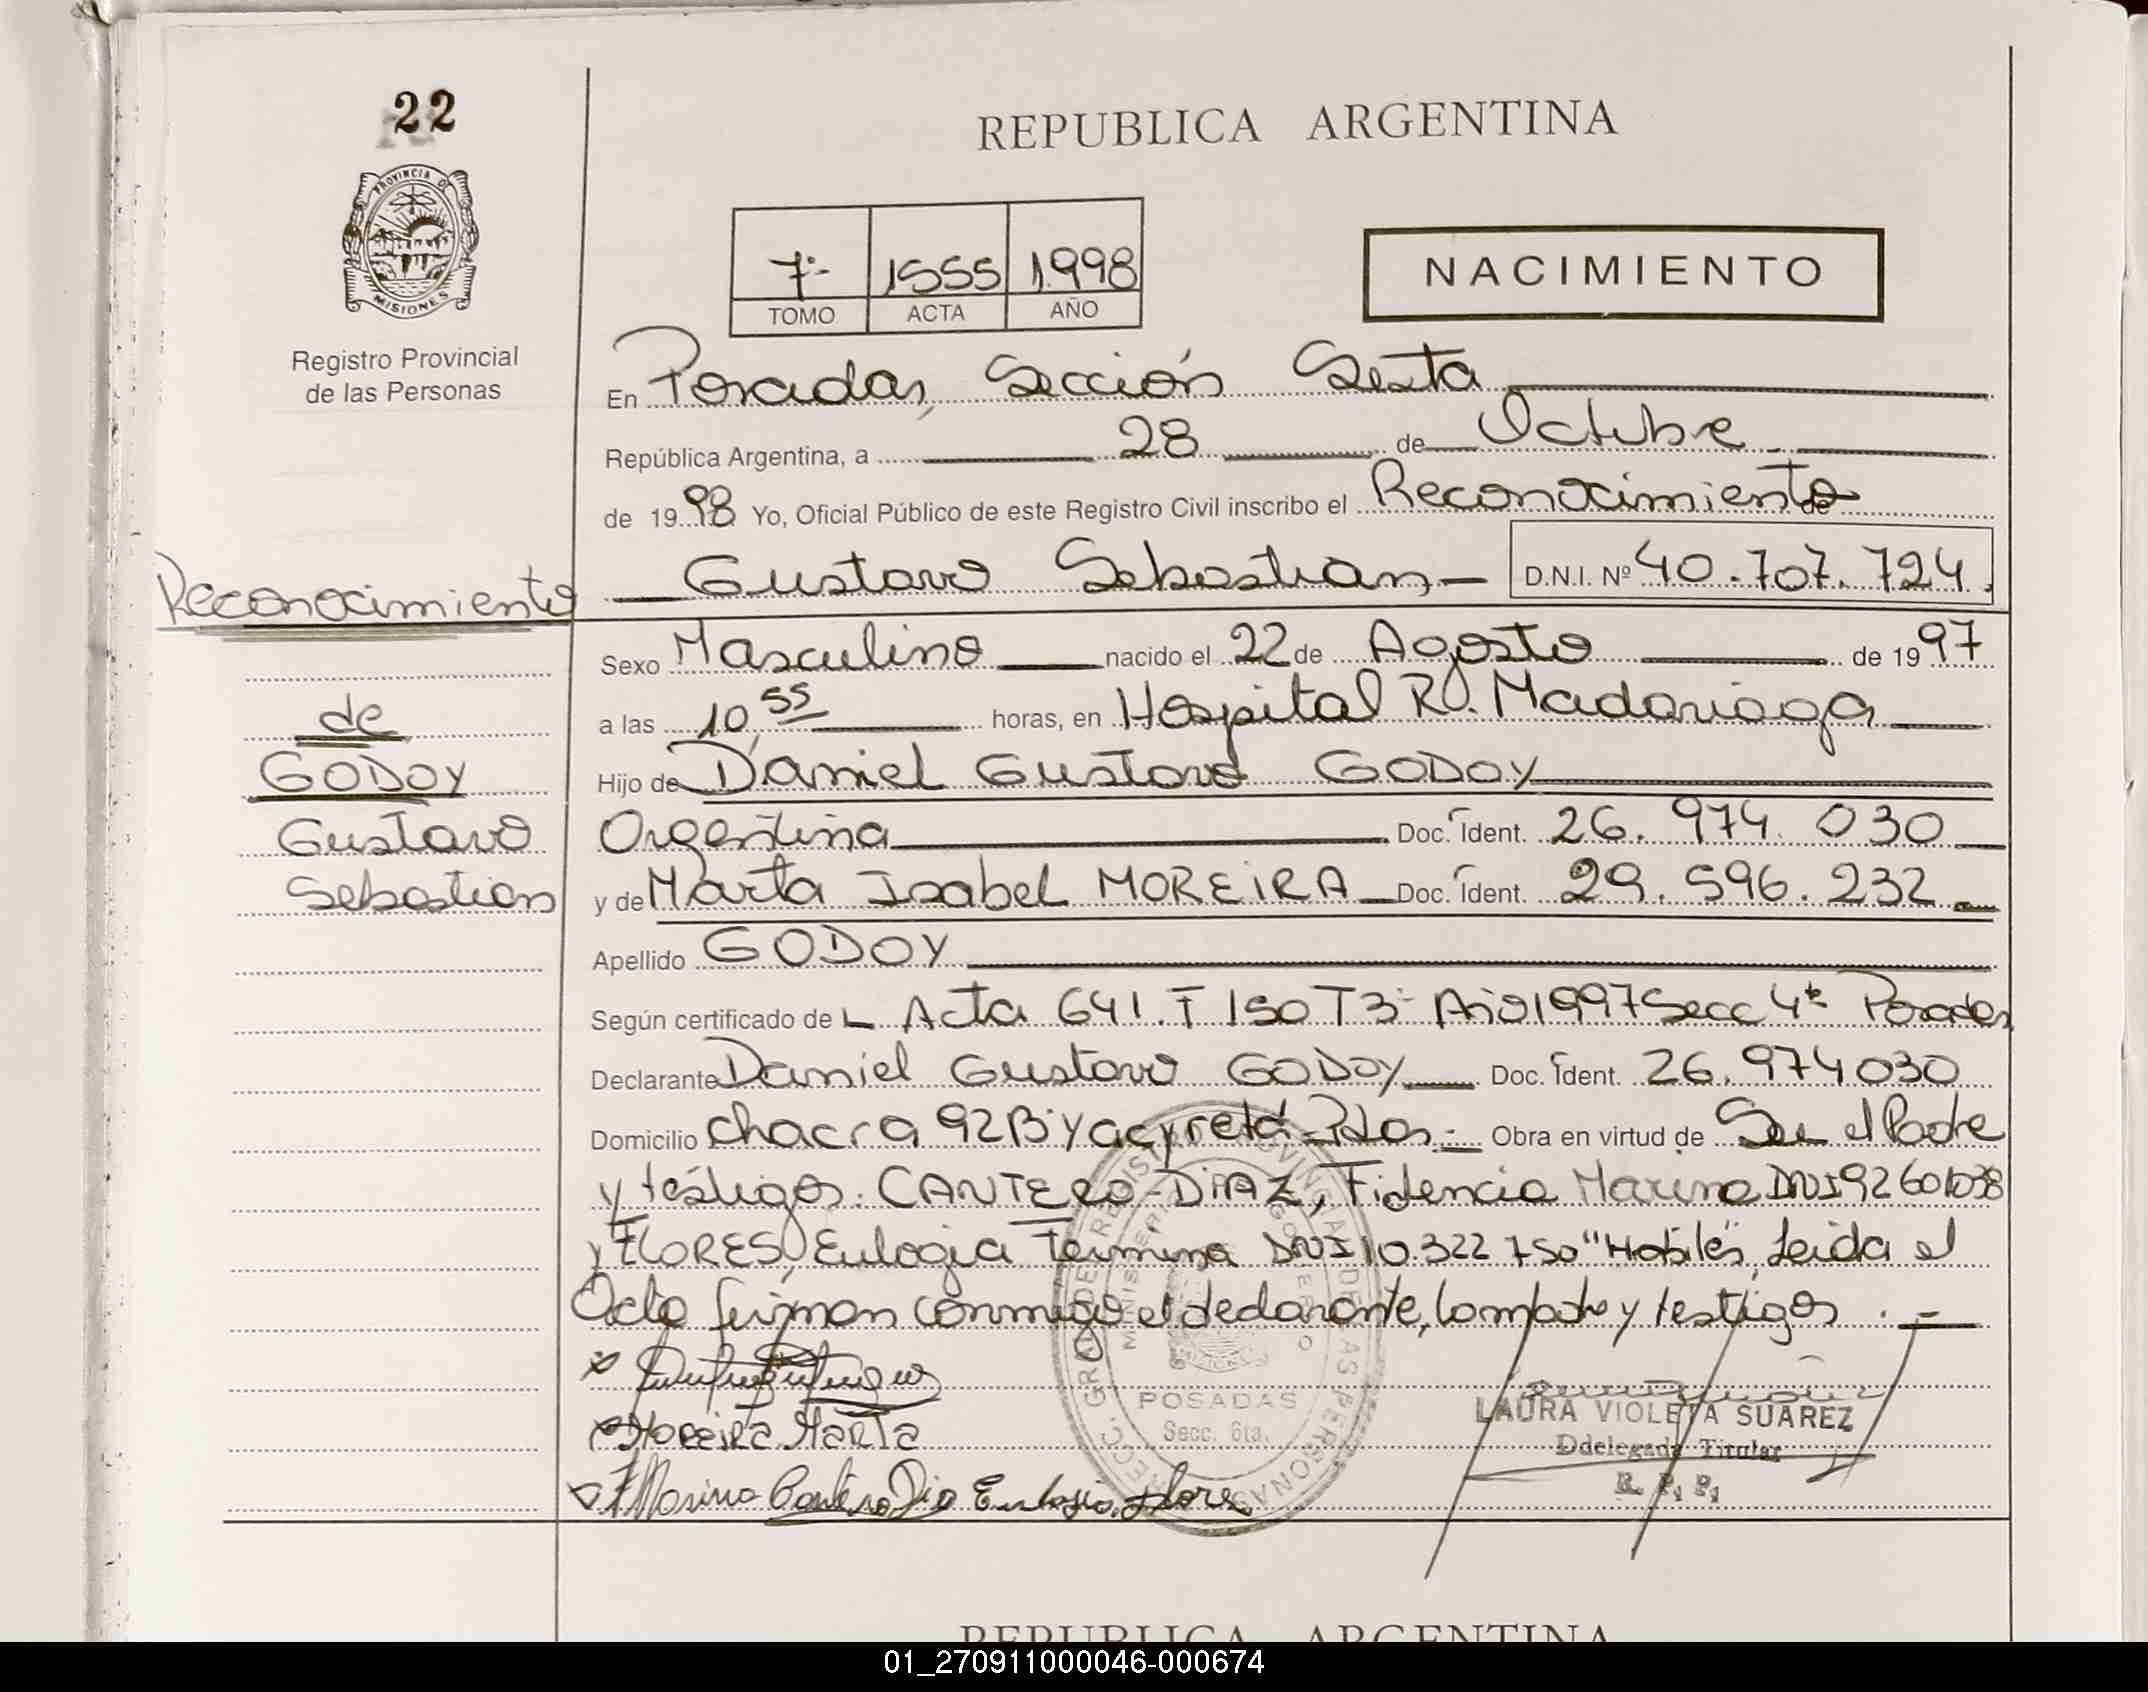 22
REPUBLICA ARGENTINA
PROVINCIA DE
MISIONES
Registro Provincial
de las Personas
7- 1555 1.998
TOMO ACTA AÑO
NACIMIENTO
En Posadas, Sección Sexta
República Argentina, a 28 de Octubre
de 1998 Yo, Oficial Público de este Registro Civil inscribo el Reconocimiento de
Gustavo Sebastian, D.N.I. Nº 40.707.724.
Reconocimiento
de
GODOY
Gustavo
Sebastian
Sexo Masculino nacido el 22 de Agosto de 1997
a las 10,55 horas, en Hospital R. Madariaga
Hijo de Daniel Gustavo GODOY
Argentina Doc. Ident. 26.974.030
y de Marta Isabel MOREIRA Doc. Ident. 29.596.232
Apellido GODOY
Según certificado de Acta 641. T 150 T 3- Año 1997 Secc 4ta Posadas
Declarante Daniel Gustavo GODOY Doc. Ident. 26.974030
Domicilio chacra 92 Bº yacyretá Pdas.- Obra en virtud de Ser el Padre
y testigos: CANTERO-DIAZ, Fidencia Marina DNI 92601038
y FLORES, Eulogia DNI 10.322 750 "Habiles", Leida el
Acta firman conmigo el declarante, la madre y testigos.-
Moreira Marta
Marina Cantero Dia Eulogia Flores
POSADAS
Secc. 6ta.
LAURA VIOLETA SUAREZ
Ddelegada Titular
R. P. P.
REPUBLICA ARGENTINA
01_270911000046-000674